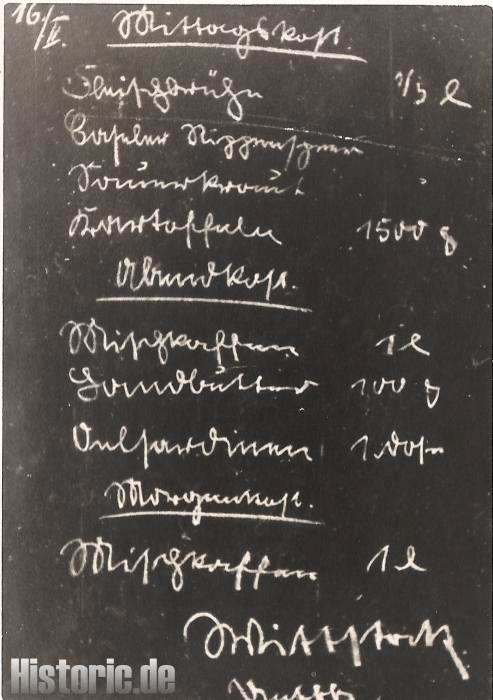 16./II. Mittagskost.
Fleischbrühe 1/3 l
Casseler Rippenspeer
Sauerkraut
Kartoffeln 1500 g
Abendkost.
Mischkaffee 1 l
Landbutter 100 g
Oelsardinen 1 Dose
Morgenkost.
Mischkaffee 1 l
Wittstock
Historic.de